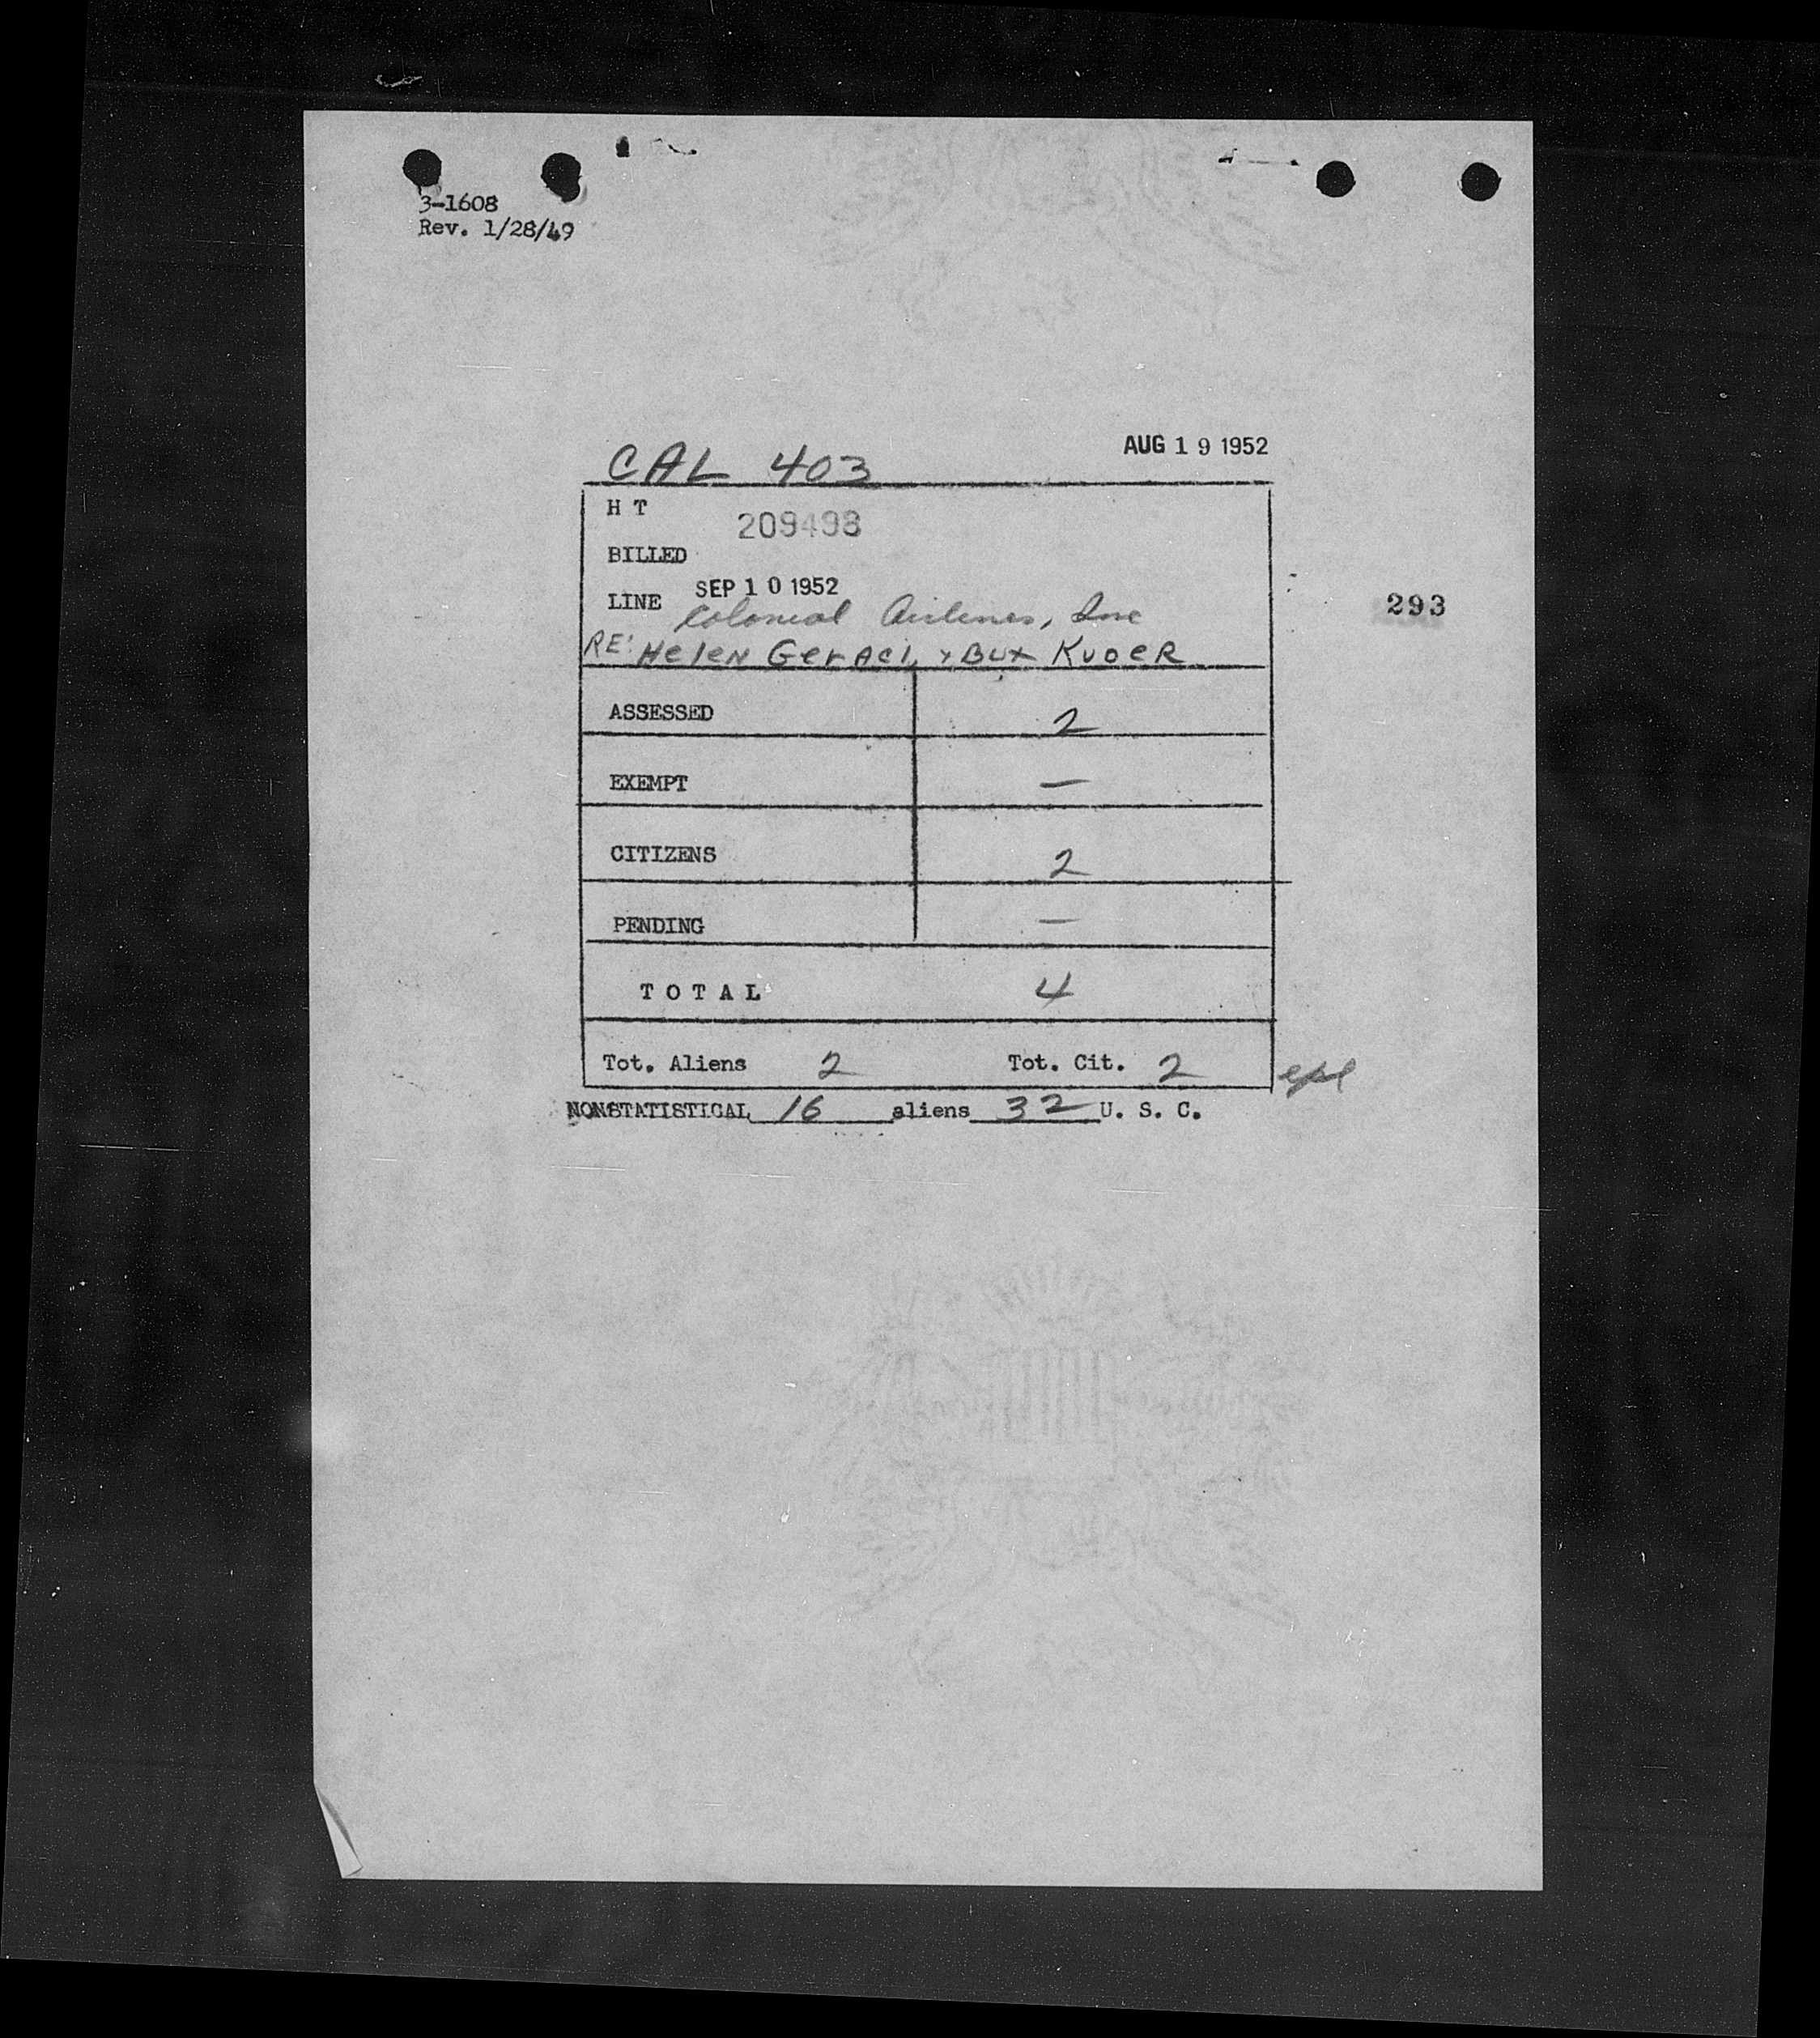 3-1608
Rev. 1/28/49
AUG 19 1952
CAL 403
H T
209498
BILLED
SEP 10 1952
LINE Colonial Airlines, Inc
293
RE: Helen
ASSESSED 2
EXEMPT —
CITIZENS 2
PENDING —
TOTAL 4
Tot. Aliens 2 Tot. Cit. 2
NONSTATISTICAL 16 aliens 32 U. S. C.